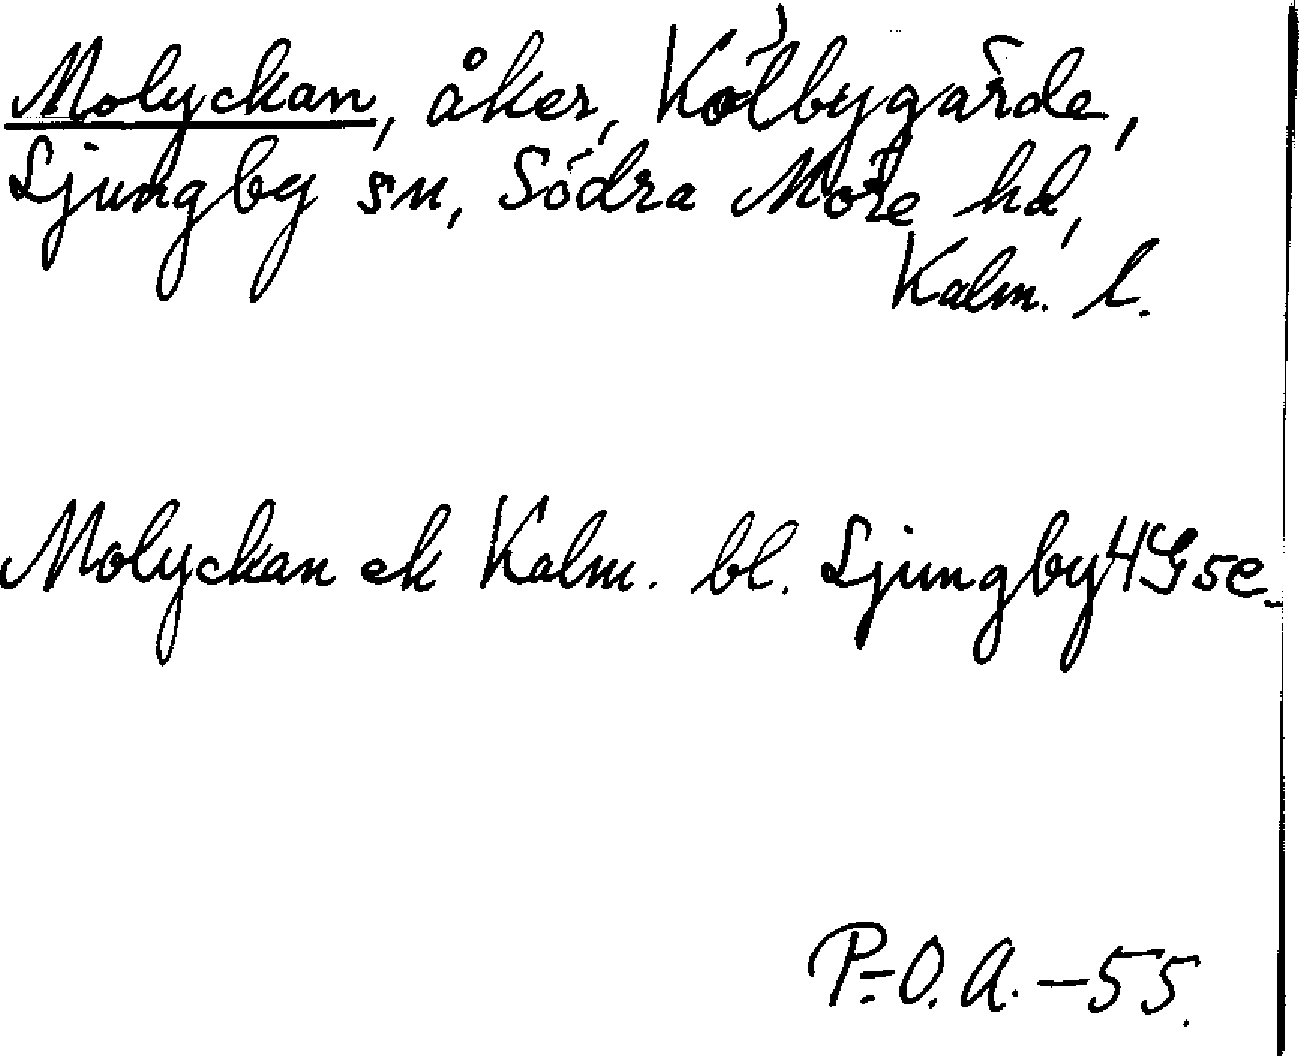 Molyckan, åker, Kölbygärde,
Ljungby sn, Södra Möre hd,
Kalm. l.
Molyckan ek Kalm. bl. Ljungby 4G5e.
P.-O. A. - 55.